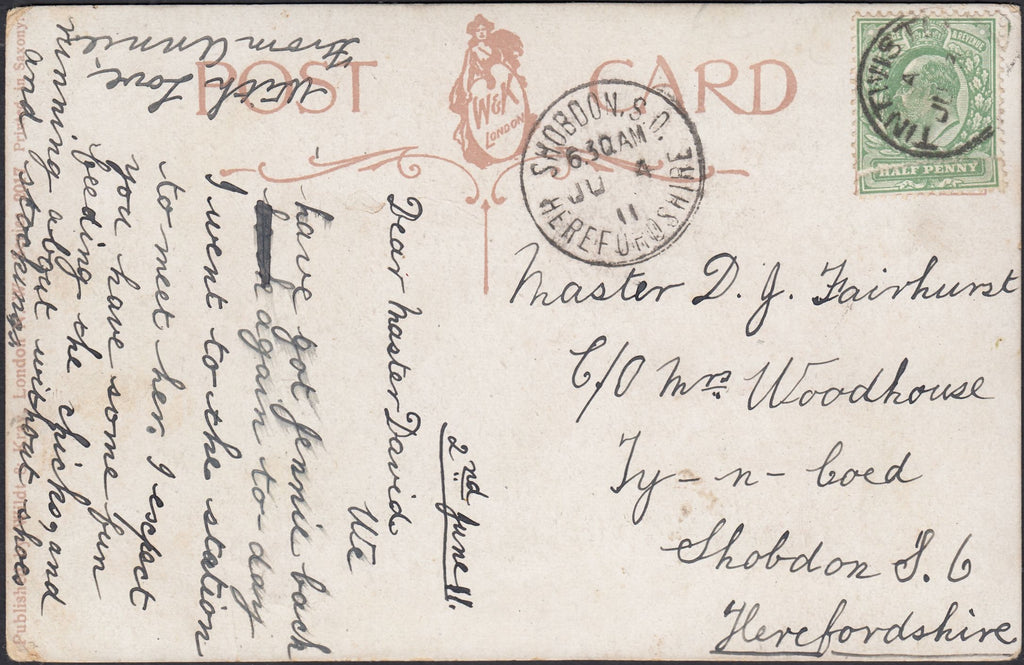 POST CARD
W&K
LONDON
SHOBDON. S.O.
6 30 AM
JU 4
11
HEREFORDSHIRE
TINTWIST
A
JU
HALF PENNY
Master D. J. Fairhurst
C/O Mrs Woodhouse
Ty-n-Coed
Shobdon S. O
Herefordshire
2nd June 11.
Dear Master David
We
have got Jennie back
again to-day
I went to the station
to meet her. I expect
you have some fun
feeding the chicks, and
running about without shoes
and stockings
With Love
From Annie
Publish London Printed Saxony.